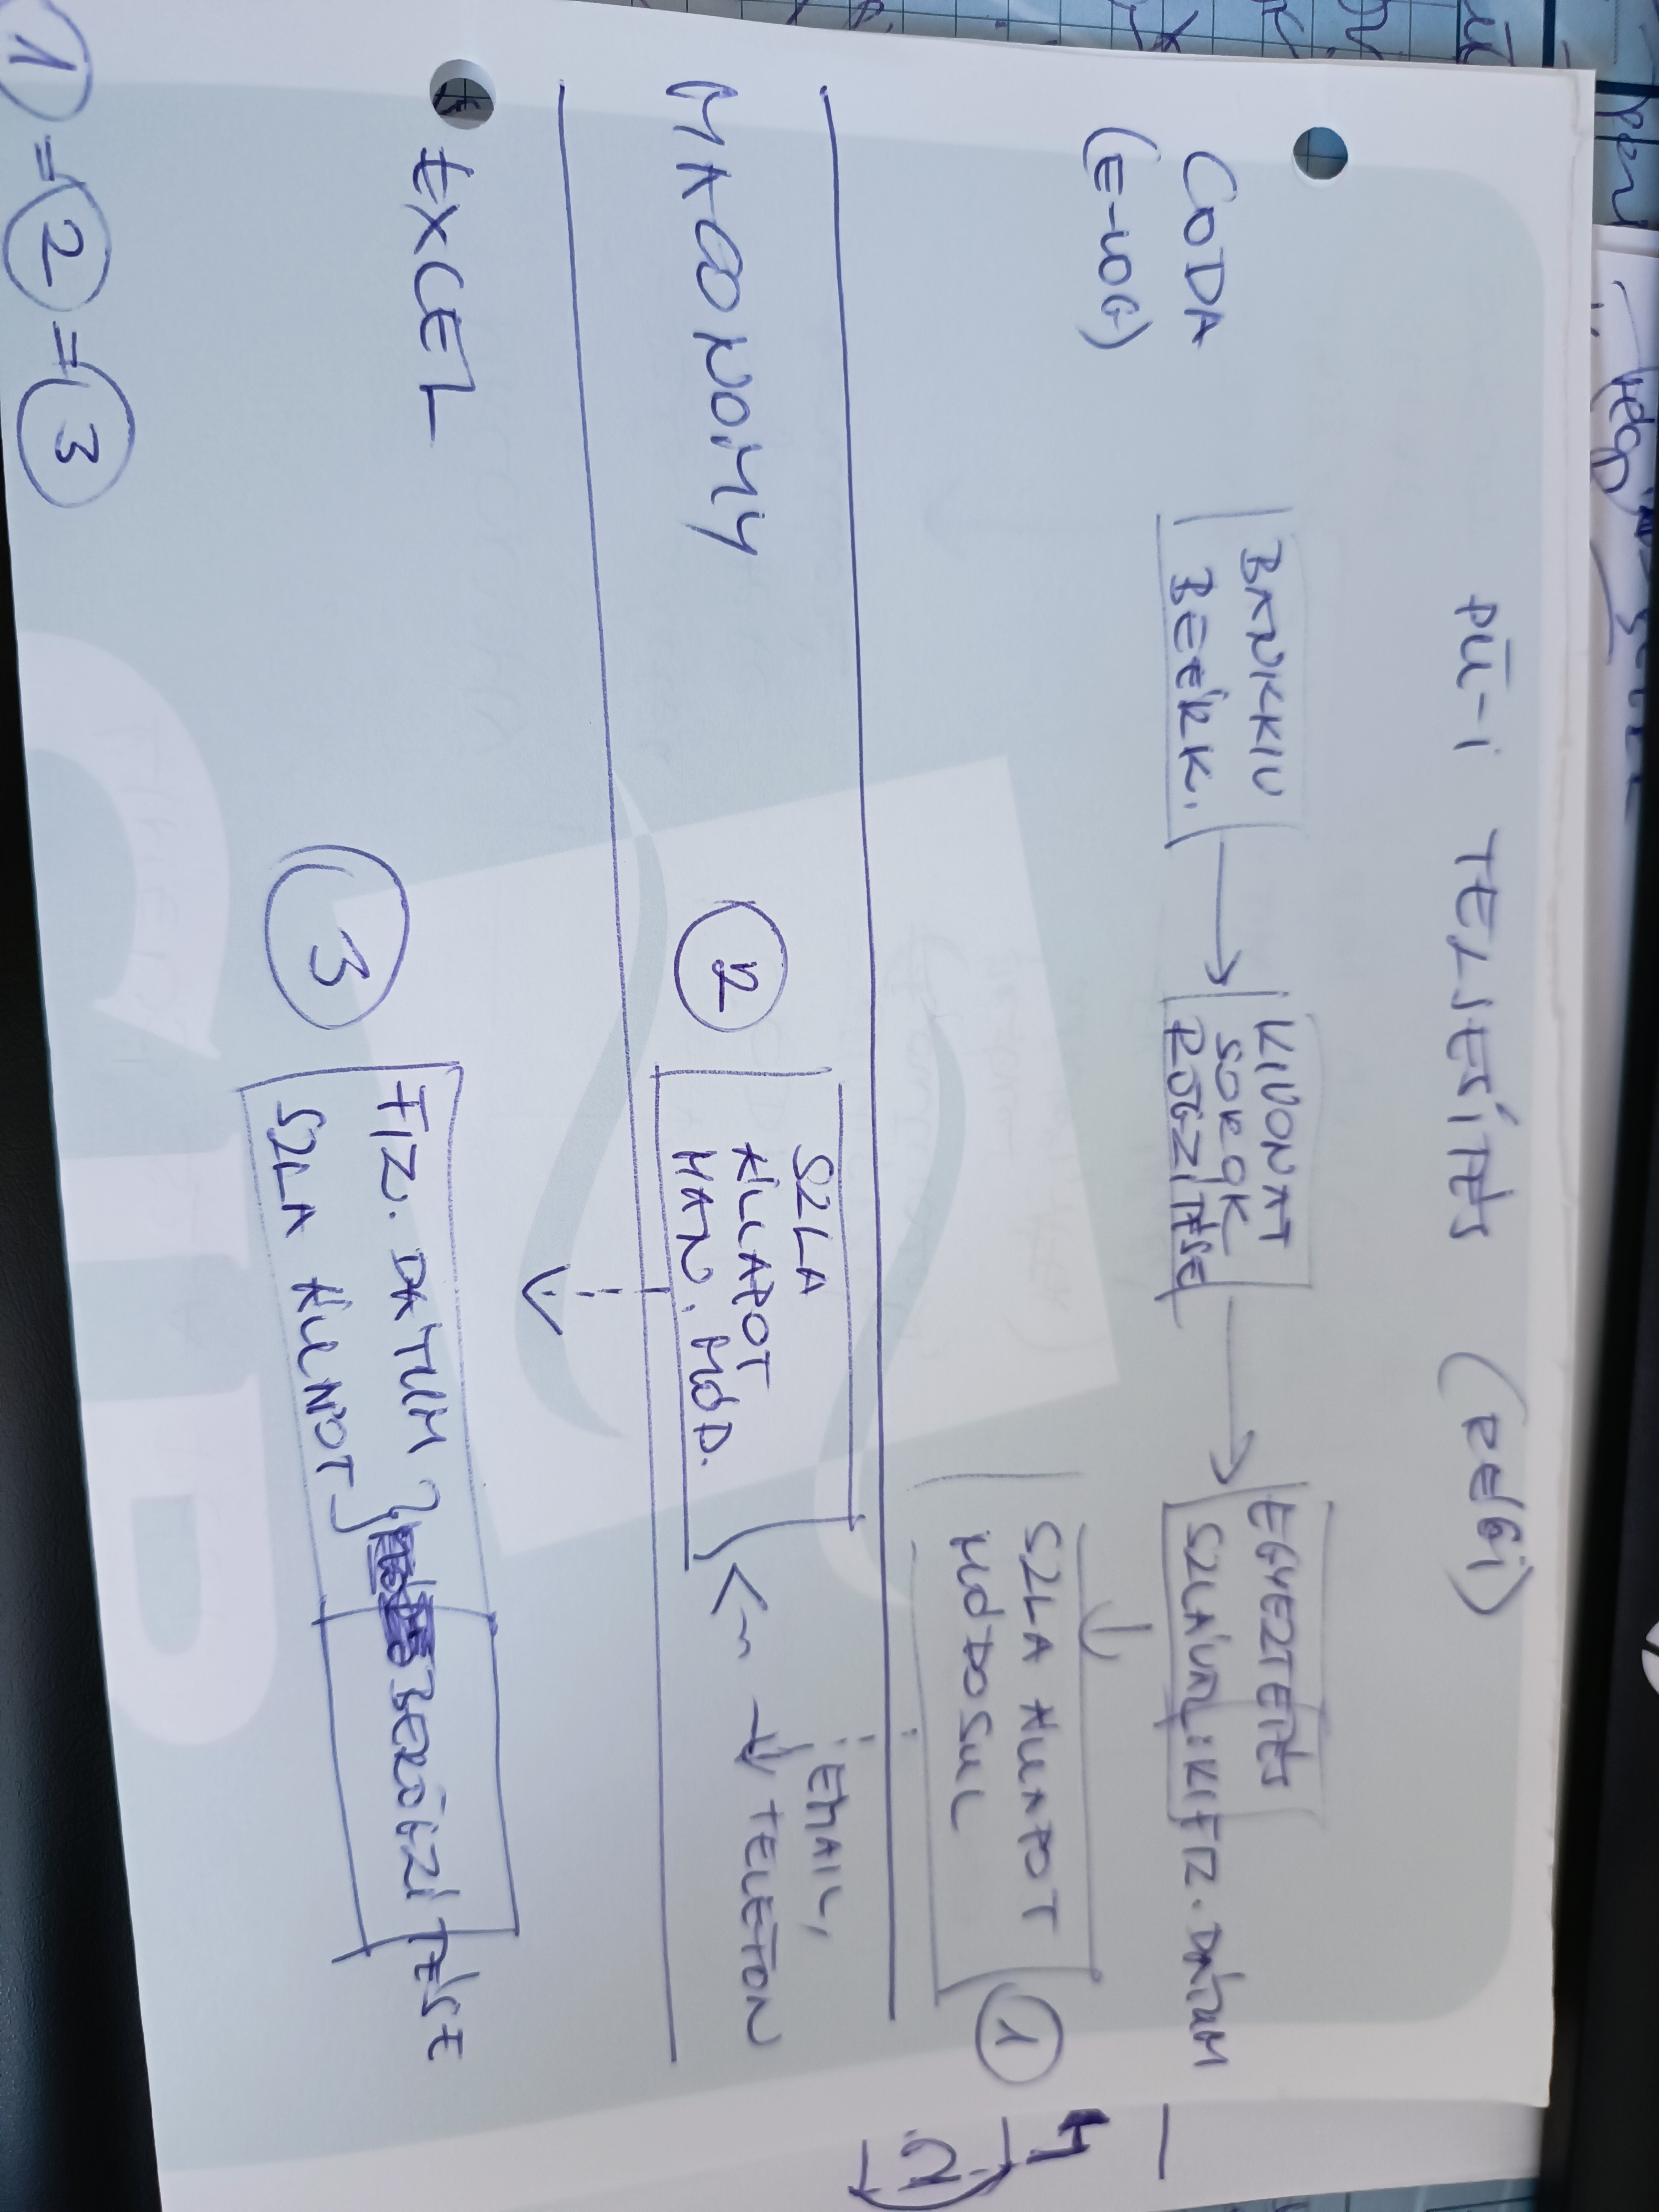 PÜ-I TELJESÍTÉS (RÉGI)
CODA
(E-LOG)
BANKKIV
BEÉRK.
KIVONAT
SOROK
RÖGZÍTÉSE
EGYEZTETÉS
SZLÁVAL: KIFIZ. DÁTUM
SZLA ÁLLAPOT
MÓDOSUL
1
EMAIL,
TELEFON
MACONOMY
2
SZLA
ÁLLAPOT
MAN. MÓD.
EXCEL
3
FIZ. DÁTUM
SZLA ÁLLAPOT
BERÖGZÍTÉSE
1 = 2 = 3
CIB